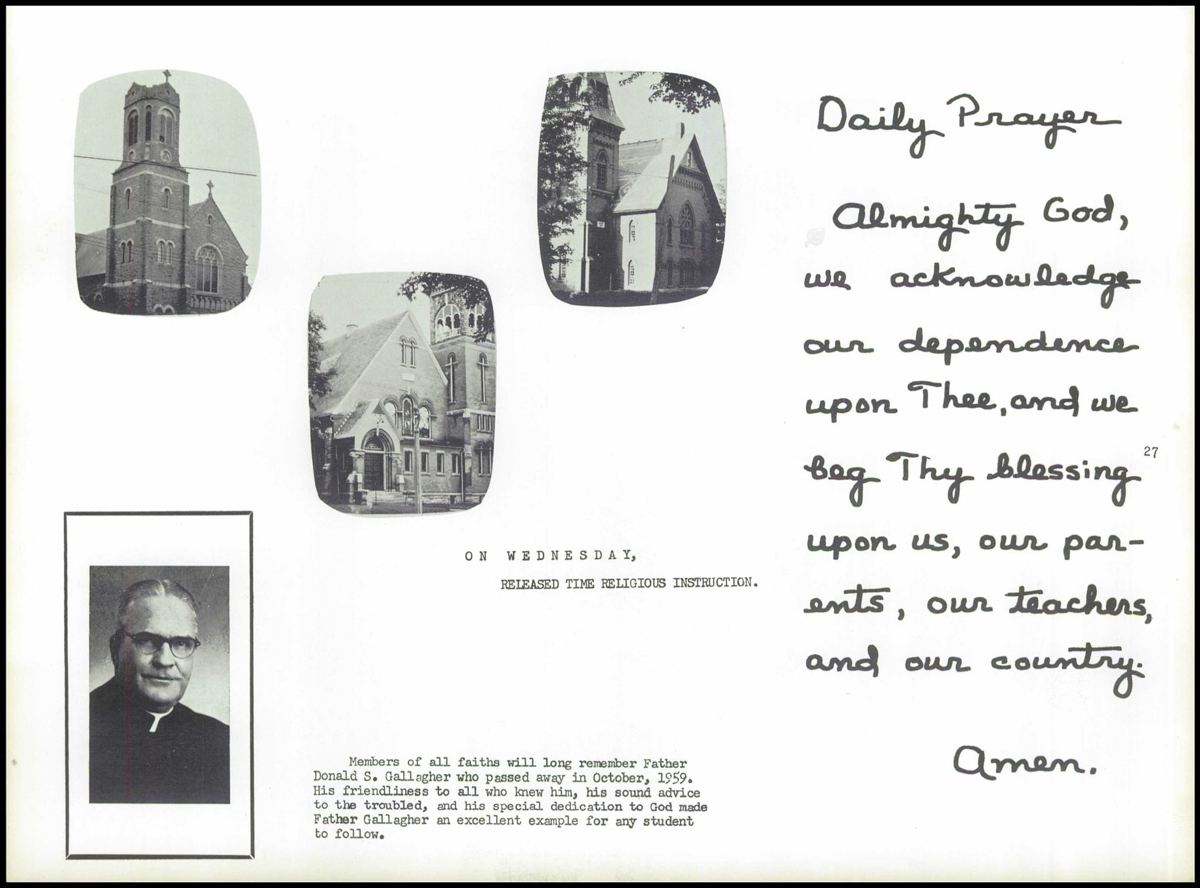 ON WEDNESDAY,
RELEASED TIME RELIGIOUS INSTRUCTION.
Members of all faiths will long remember Father
Donald S. Gallagher who passed away in October, 1959.
His friendliness to all who knew him, his sound advice
to the troubled, and his special dedication to God made
Father Gallagher an excellent example for any student
to follow.
Daily Prayer
Almighty God,
we acknowledge
our dependence
upon Thee, and we
beg Thy blessing
upon us, our par-
ents, our teachers,
and our country.
Amen.
27